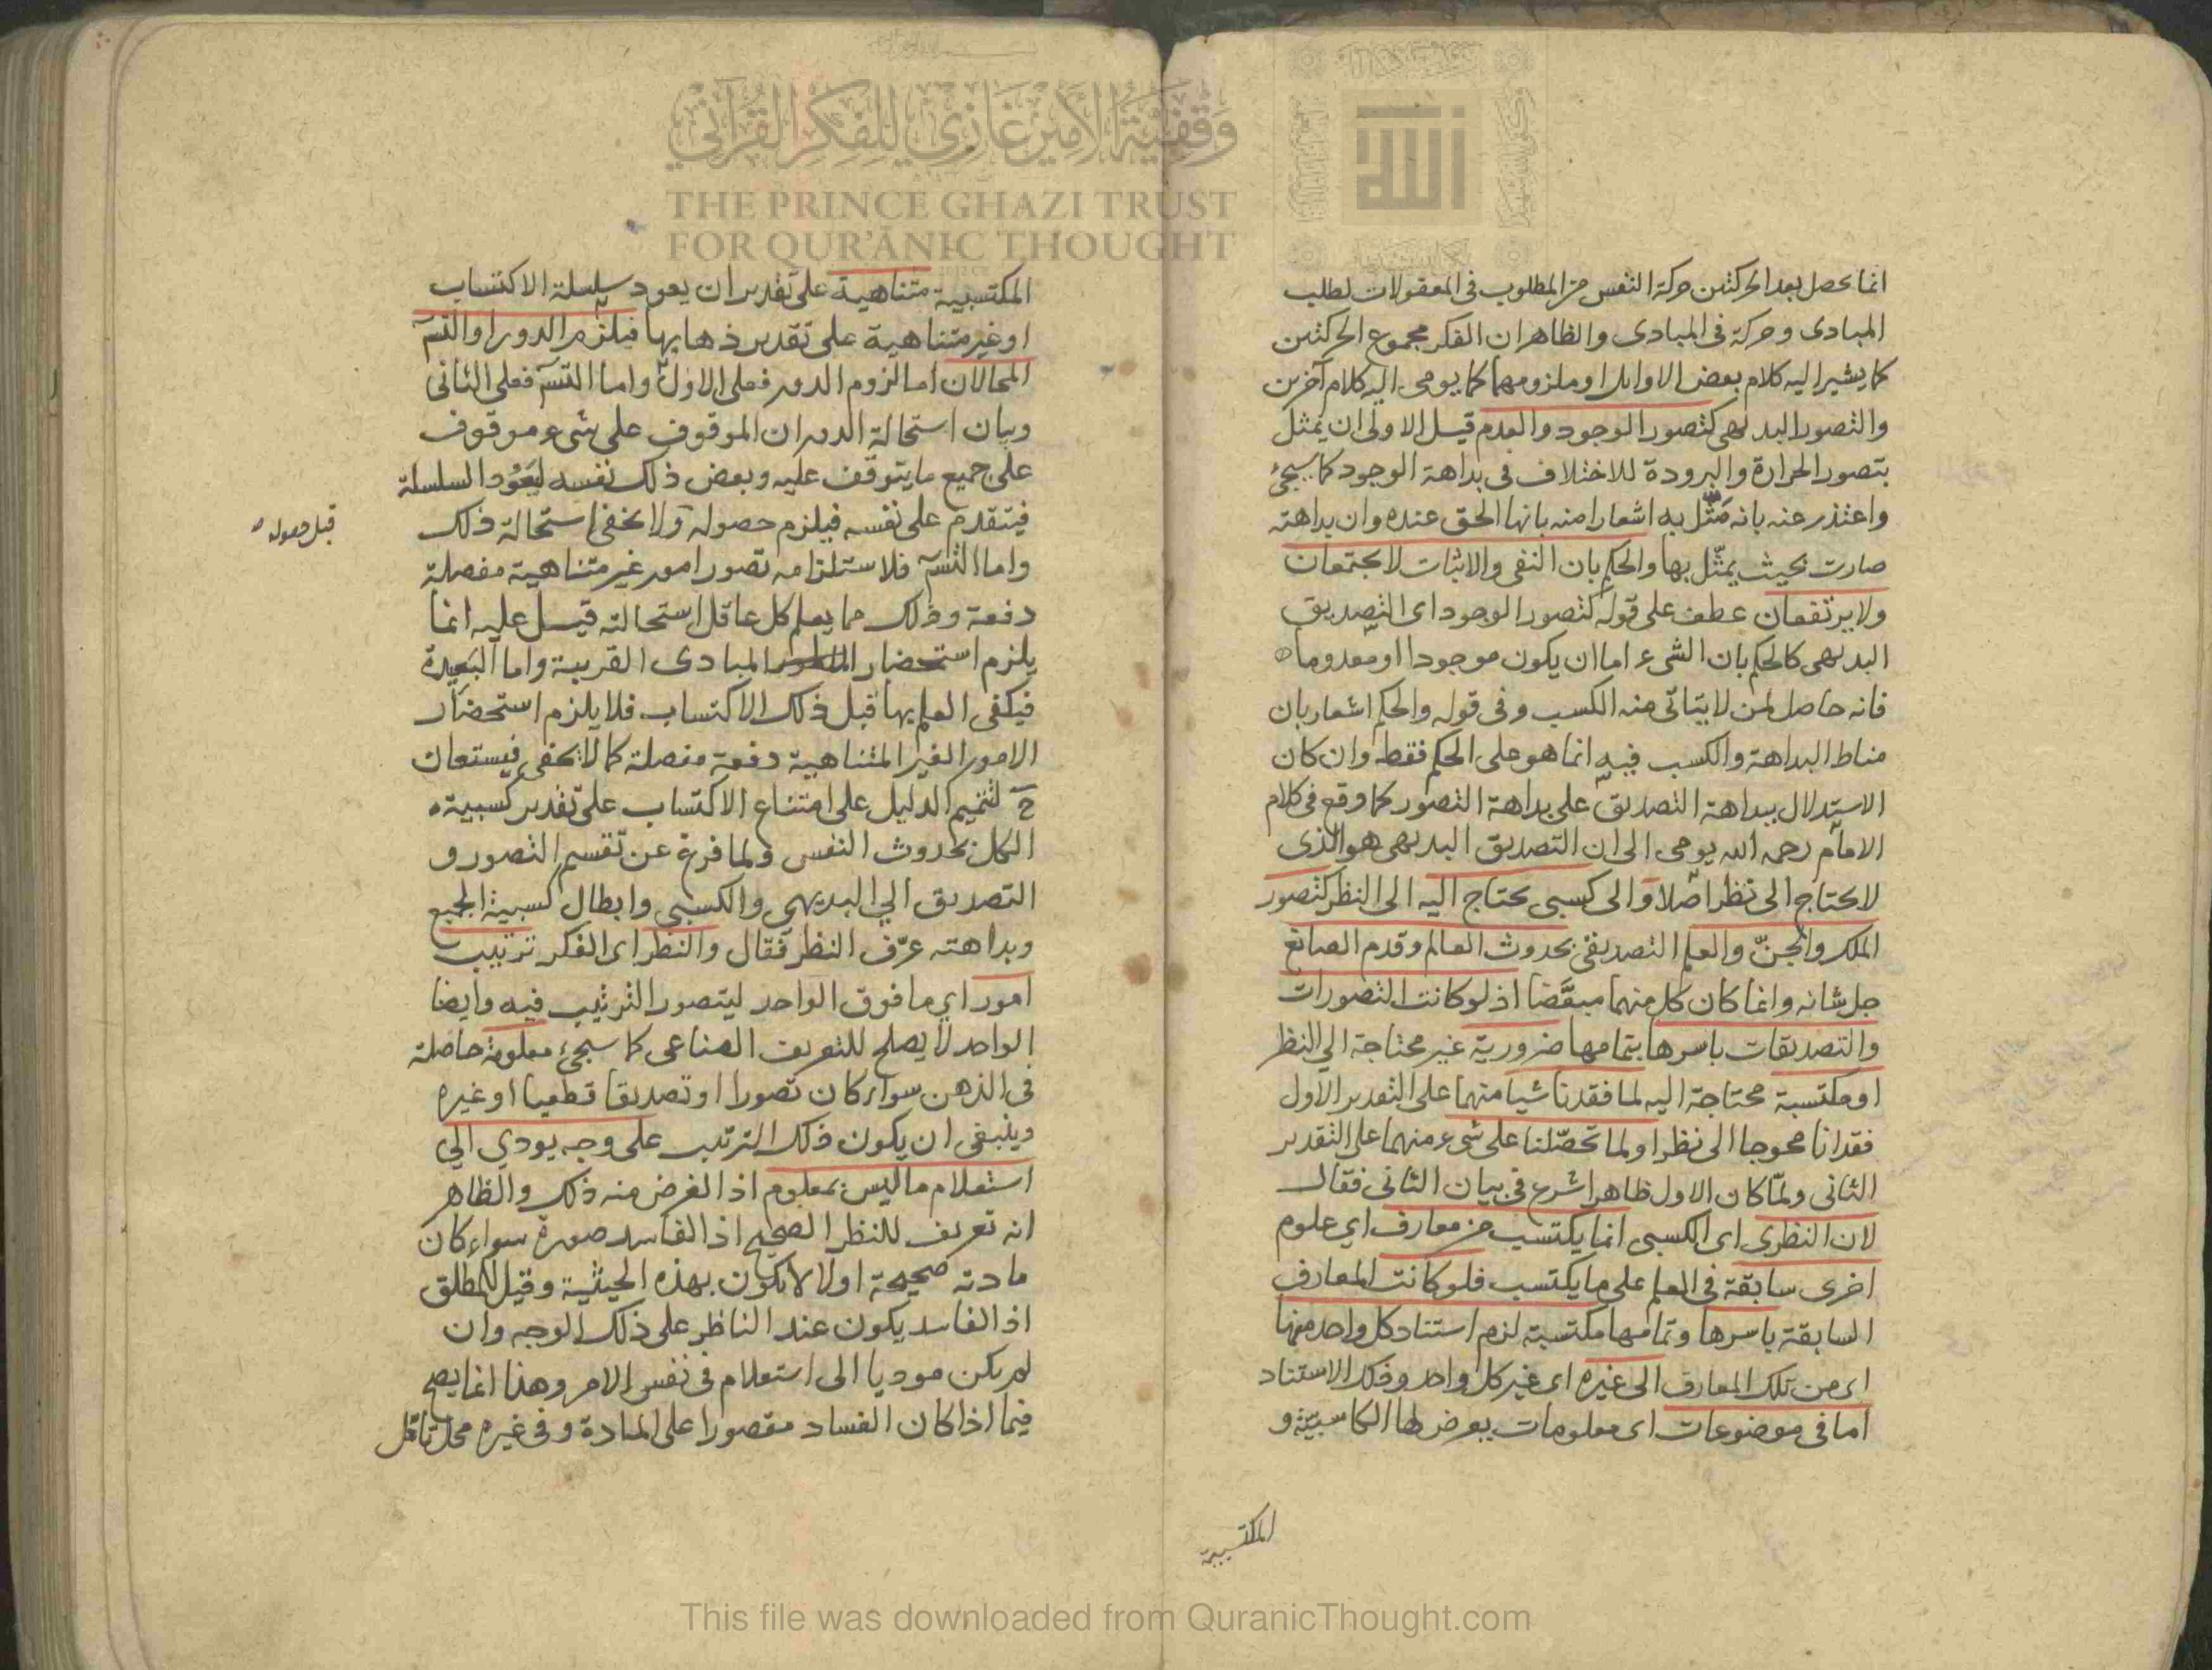 انما يحصل بعد الحركتين حركة النفس من المطلوب فى المعقولات لطلب
المبادى وحركة فى المبادى والظاهر ان الفكر مجموع الحركتين
كما يشير اليه كلام بعض الاوايل او ملزومهما كما يومى اليه كلام آخرين
والتصور البديهى كتصور الوجود والعدم قيل الاولى ان يمثل
بتصور الحرارة والبرودة للاختلاف فى بداهة الوجود كما سيجئ
واعتذر عنه بانه مثّل به اشعارا منه بانها الحق عنده وان بداهته
صارت بحيث يمثّل بها والحكم بان النفى والاثبات لا يجتمعان
ولا يرتفعان عطف على قوله كتصور الوجود اى التصديق
البديهى كالحكم بان الشىء اما ان يكون موجودا او معدوما
فانه حاصل لمن لا يتاتى منه الكسب وفى قوله والحكم اشعار بان
مناط البداهة والكسب فيه انما هو على الحكم فقط وان كان
الاستدلال ببداهة التصديق على بداهة التصور كما وقع فى كلام
الامام رحمه الله يومى الى ان التصديق البديهى هو الذى
لا يحتاج الى نظر اصلا والى كسبى يحتاج اليه الى النظر كتصور
الملك والجنّ والعلم التصديقى بحدوث العالم وقدم الصانع
جل شانه وانما كان كل منهما مبعّضا اذ لو كانت التصورات
والتصديقات باسرها بتمامها ضرورية غير محتاجة الى النظر
او مكتسبة محتاجة اليه لما فقدنا شيا منهما على التقدير الاول
فقدانا محوجا الى نظر او لما تحصّلنا على شىء منهما على التقدير
الثانى ولمّا كان الاول ظاهرا شرع فى بيان الثانى فقال
لان النظرى اى الكسبى انما يكتسب من معارف اي علوم
اخرى سابقة فى العلم على ما يكتسب فلو كانت المعارف
السابقة باسرها وتمامها مكتسبة لزم استناد كل واحد منها
اى من تلك المعارف الى غيره اى غير كل واحد وذلك الاستناد
اما فى موضوعات اى معلومات يعرض لها الكاسبية و
المكتسبية
المكتسبية متناهية على تقدير ان يعود سلسلة الاكتساب
او غير متناهية على تقدير ذهابها فيلزم الدور او التسـ
المحالان اما لزوم الدور فعلى الاول واما التسـ فعلى الثانى
وبيان استحالة الدور ان الموقوف على شىء موقوف
على جميع ما يتوقف عليه وبعض ذلك نفسه لعَوْد السلسلة
فيتقدم على نفسه فيلزم حصوله ولا يخفى استحالة ذلك
قبل حصوله
واما التسـ فلاستلزامه تصور امور غير متناهية مفصلة
دفعة وذلك مما يعلم كل عاقل استحالته قيل عليه انما
يلزم استحضار المبادى القريبة واما البعيدة
فيكفى العلم بها قبل ذلك الاكتساب فلا يلزم استحضار
الامور الغير المتناهية دفعة مفصلة كما لا يخفى فيستعان
ح لتتميم الدليل على امتناع الاكتساب على تقدير كسبية
الكل بحدوث النفس ولما فرغ عن تقسيم التصور و
التصديق الي البديهي والكسبي وابطال كسبية الجميع
وبداهته عرّف النظر فقال والنظر اى الفكر ترتيب
امور اي ما فوق الواحد ليتصور الترتيب فيه وايضا
الواحد لا يصلح للتعريف الصناعى كما سيجئ معلومة حاصلة
فى الذهن سواء كان تصورا او تصديقا قطعيا او غيره
وينبغى ان يكون ذلك الترتيب على وجه يودي الي
استعلام ما ليس بمعلوم اذ الغرض منه ذلك والظاهر
انه تعريف للنظر الصحيح اذ الفاسد صورة سواء كان
مادته صحيحة او لا لا يكون بهذه الحيثية وقيل للمطلق
اذ الفاسد يكون عند الناظر على ذلك الوجه وان
لم يكن موديا الى استعلام فى نفس الامر وهذا انما يصح
فيما اذا كان الفساد مقصورا على المادة وفى غيره محل تامل
وقفية الأمير غازي للفكر القرآني
THE PRINCE GHAZI TRUST
FOR QUR'ĀNIC THOUGHT
This file was downloaded from QuranicThought.com